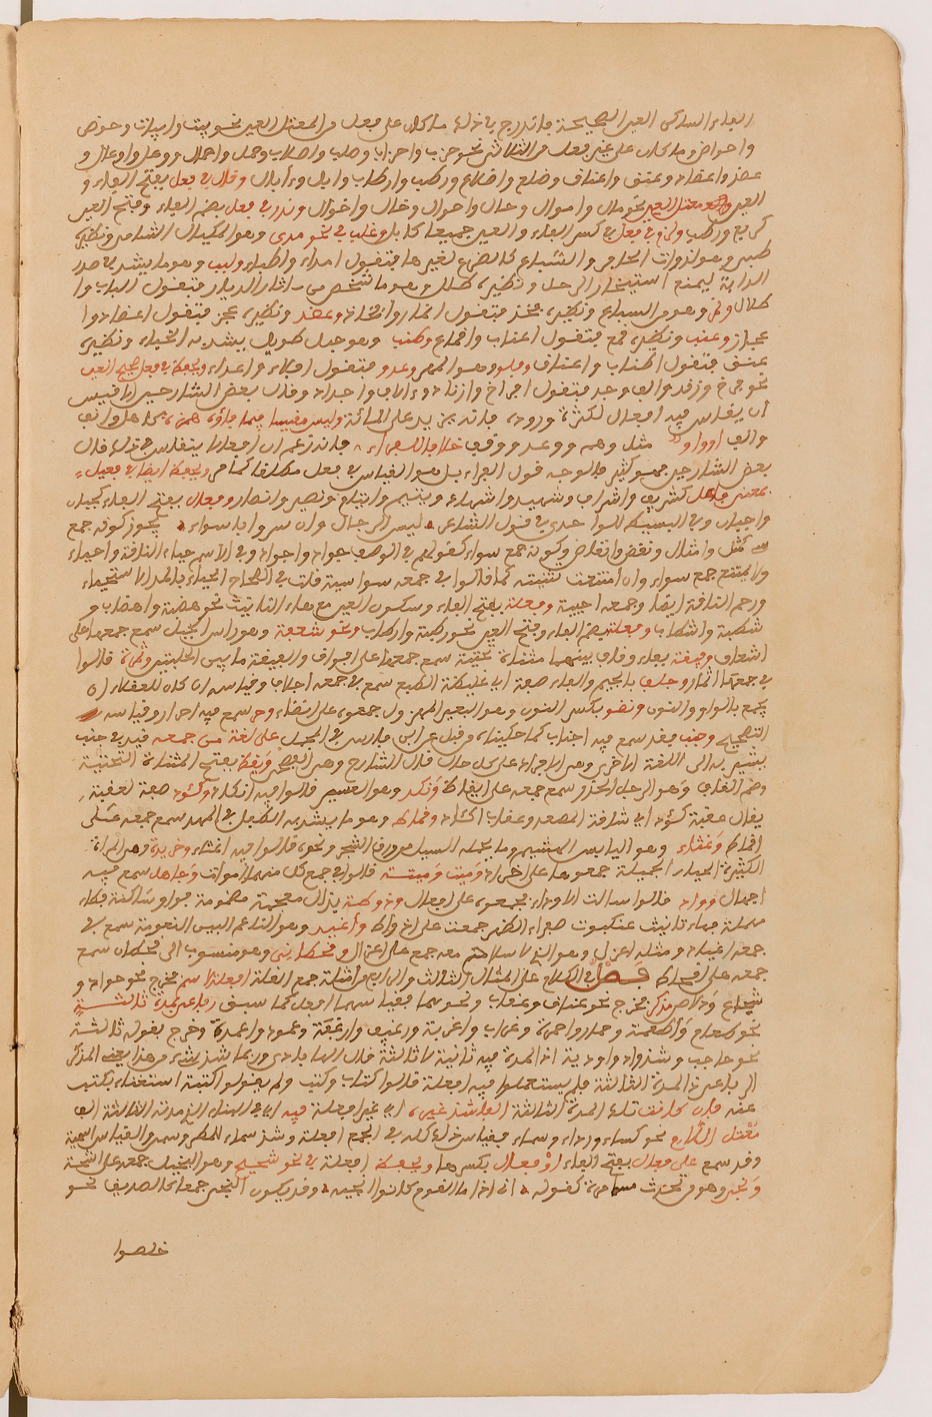 الفاء الساكن العين الصحيحة فاندرج في ذلك ما كان على فعل من المعتل العين نحو بيت وابيات وحوض
واحواض وما كان على غير فعل من الثلاثي نحو حزب واحزاب وصلب واصلاب وجمل واجمال ووعل واوعال و
عضد واعضاد وعنق واعناق وضلع واضلاع ورطب وارطاب وابل وءابال وقل في فعل بفتح الفاء و
العين معتل العين نحو مال واموال وحال واحوال وخال واخوال وندر في فعل بضم الفاء وفتح العين
كربع ورطب ولزم في فعل بكسر الفاء والعين جميعا كابل وغلب في نحو مدى وهو المكيال الشامي ونظيره
طبي وهو لذوات الحافر والسباع كالضرع لغيرها فتقول امداء واطباء ولبب وهو ما يشد في صدر
الدابة ليمنع استيخار الرحل ونظيره طلل وهو ما شخص من ءاثار الديار فتقول الباب وا
طلال ونمر وهو من السباع ونظيره فخذ فتقول انمار وافخاذ وعضد ونظيره عجز فتقول اعضاد وا
عجاز وعنب ونظيره قمع فتقول اعناب واقماع وطنب وهو حبل طويل يشد به الخباء ونظيره
عنق فتقول اطناب واعناق وفلو وهو المهر وعدو فتقول افلاء واعداء ويحفظ في فعل صحيح العين
نحو فرخ وزند والف وجد فتقول افراخ وازناد وءالاف واجداد وقال بعض الشارحين الاقيس
ان يقاس فيه افعال لكثرة وروده فانه يزيد على المائة وليس مقيسا فيما فاؤه همزة كاهل والف
والف او واو مثل وهم ووعد ووقف خلافا للفراء فانه زعم ان افعالا ينقاس في ذلك قال
بعض الشارحين جمهو كثير فالوجه قول الفراء بل هو القياس في فعل مطلقا كما مر ويحفظ ايضا في فعيل
بمعنى فاعل كشريف واشراف وشهيد واشهاد ويتيم وايتام ونصير وانصار وفعال بفتح الفاء كجبان
واجبان وفي البسيط للواحدي في قول الشاعر ليس الرجال وان سروا بسواء يجوز كونه جمع
كمثل وامثال ونقض وانقاض وكونه جمع سواء كقولهم في الوصف جواد واجواد وفي الاسم حياء الناقة واحياء
ولا يمتنع جمع سواء وان امتنعت تثنيته كما قالوا في جمعه سواسية قلت في الصحاح الحياء بالمد الاستحياء
ورحم الناقة ايضا وجمعه احيية وفعلة بفتح الفاء وسكون العين مع هاء التانيث نحو هضبة واهضاب و
شطبة واشطاب وفعلة بضم الفاء وفتح العين نحو رطبة وارطاب ونحو شعفة وهو راس الجبل سمع جمعها على
اشعاف وفيقة بفاء وقاف بينهما مثناة تحتية سمع جمعها على افواق والفيقة ما بين الحلبتين وثمرة قالوا
في جمعها اثمار وجلف بالجيم والفاء صفة اي غليظة الطبع سمع في جمعه اجلاف وقياسه ان كان للعقلاء ان
يجمع بالواو والنون ونضو بكسر النون وهو البعير المهزول جمعوه على انضاء وحر سمع فيه احرار وقياسه
التصحيح وجنب فقد سمع فيه اجناب كما حكيناه وقيل عن ابن فارس في المجمل على لغة من جمعه فيه في جنب
يشير به الى اللغة الاخرى وهي الافراد على كل حال قال الشارح وهي الفصحى ويقظ بفتح المثناة التحتية
وضم القاف وهو الرجل الحذر سمع جمعه على ايقاظ ونكد وهو العسير قالوا فيه انكاد وكؤد صفة لعقبة
يقال عقبة كئود اي شاقة المصعد وعقاب اكئاد وقماط وهو ما يشد به الطفل في المهد سمع جمعه على
اقماط وغثاء وهو اليابس الهشيم وما يحمله السيل من ورق الشجر ونحوه قالوا فيه اغثاء وخريدة وهي المراة
الكثيرة الحياء الجميلة جمعوها على اخراد وميت وميتة قالوا في جمع كل منهما اموات وجاهل سمع فيه
اجهال وواد قالوا سالت الاوداء بجمعه على افعال وذوطة بذال معجمة مضمومة فواو ساكنة فطاء
مهملة فهاء تانيث عنكبوت صفراء الظهر جمعت على اذواط واغيد وهو الناعم البين النعومة سمع في
جمعه اغياد ومثله اعزل وهو الذي لا سلاح معه جمع على اعزال وقحطاني وهو منسوب الى قحطان سمع
جمعه على اقحاط فصل في الكلام على المثال الثالث والرابع من امثلة جمع القلة افعلة لاسم فخرج نحو جواد و
شجاع ومذكر فخرج نحو عناق وعقاب ونحوهما فقياسهما افعل كما سبق رباعي بمدة ثالثة
نحو طعام واطعمة وحمار واحمرة وغراب واغربة ورغيف وارغفة وعمود واعمدة وخرج بقوله ثالثة
نحو حاجب وشذ واد واودية اذ المدة فيه ثانية لا ثالثة قال الهاباذي وربما شذ شيء من هذا يعني المذكر
الرباعي ذا المدة الثالثة فلم يستعملوا فيه افعلة قالوا كتاب وكتب ولم يقولوا اكتبة استغناء بكتب
عنه فان كانت تلك المدة الثالثة الفا شذ غيره اي غير افعلة فيه اي في البناء الذي مدته الثالثة الف
معتل اللام نحو كساء ورداء وسماء فقياس ذلك كله في الجمع افعلة وشذ سماء للمطر وسمي والقياس اسمية
وقد سمع على فعال بفتح الفاء او فعال بكسرها ويحفظ افعلة في نحو شحيح وهو البخيل جمعه على اشحة
ونجي وهو من تحدث سرا كقوله اني اذا ما القوم كانوا انجيه وقد يكون النجي جمعا كالصديق نحو
خلصوا